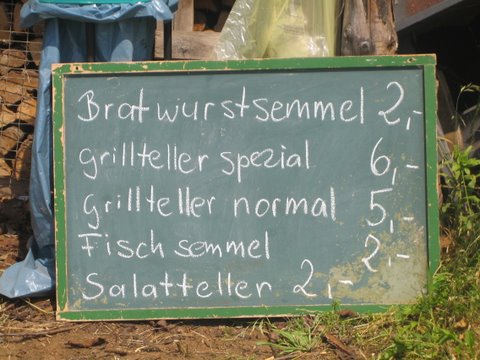 Bratwurstsemmel 2,-
grillteller spezial 6,-
Grillteller normal 5,-
Fischsemmel 2,-
Salatteller 2,-